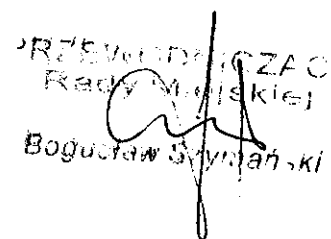 PRZEWODNICZĄC
Rady Miejskiej
Bogusław Szymański